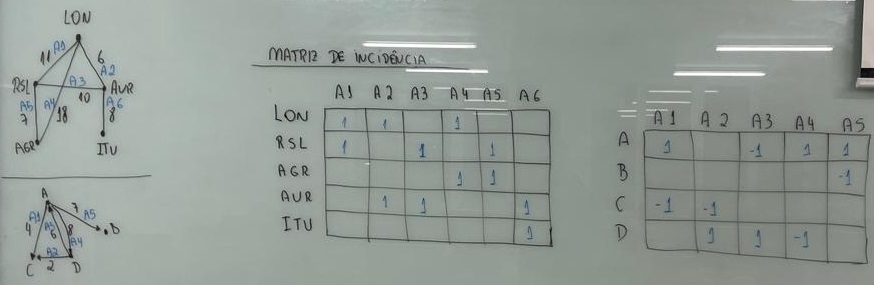 LON
11 A1 6
A2
RSL A3 AUR
A5 A4 10 A6
7 18 8
AGR ITU
A
7
A1 A5
4 A3 8 B
6 A4
A2
C 2 D
MATRIZ DE INCIDÊNCIA
A1 A2 A3 A4 A5 A6
LON 1 1 1
RSL 1 1 1
AGR 1 1
AUR 1 1 1
ITU 1
A1 A2 A3 A4 A5
A 1 -1 1 1
B -1
C -1 -1
D 1 1 -1